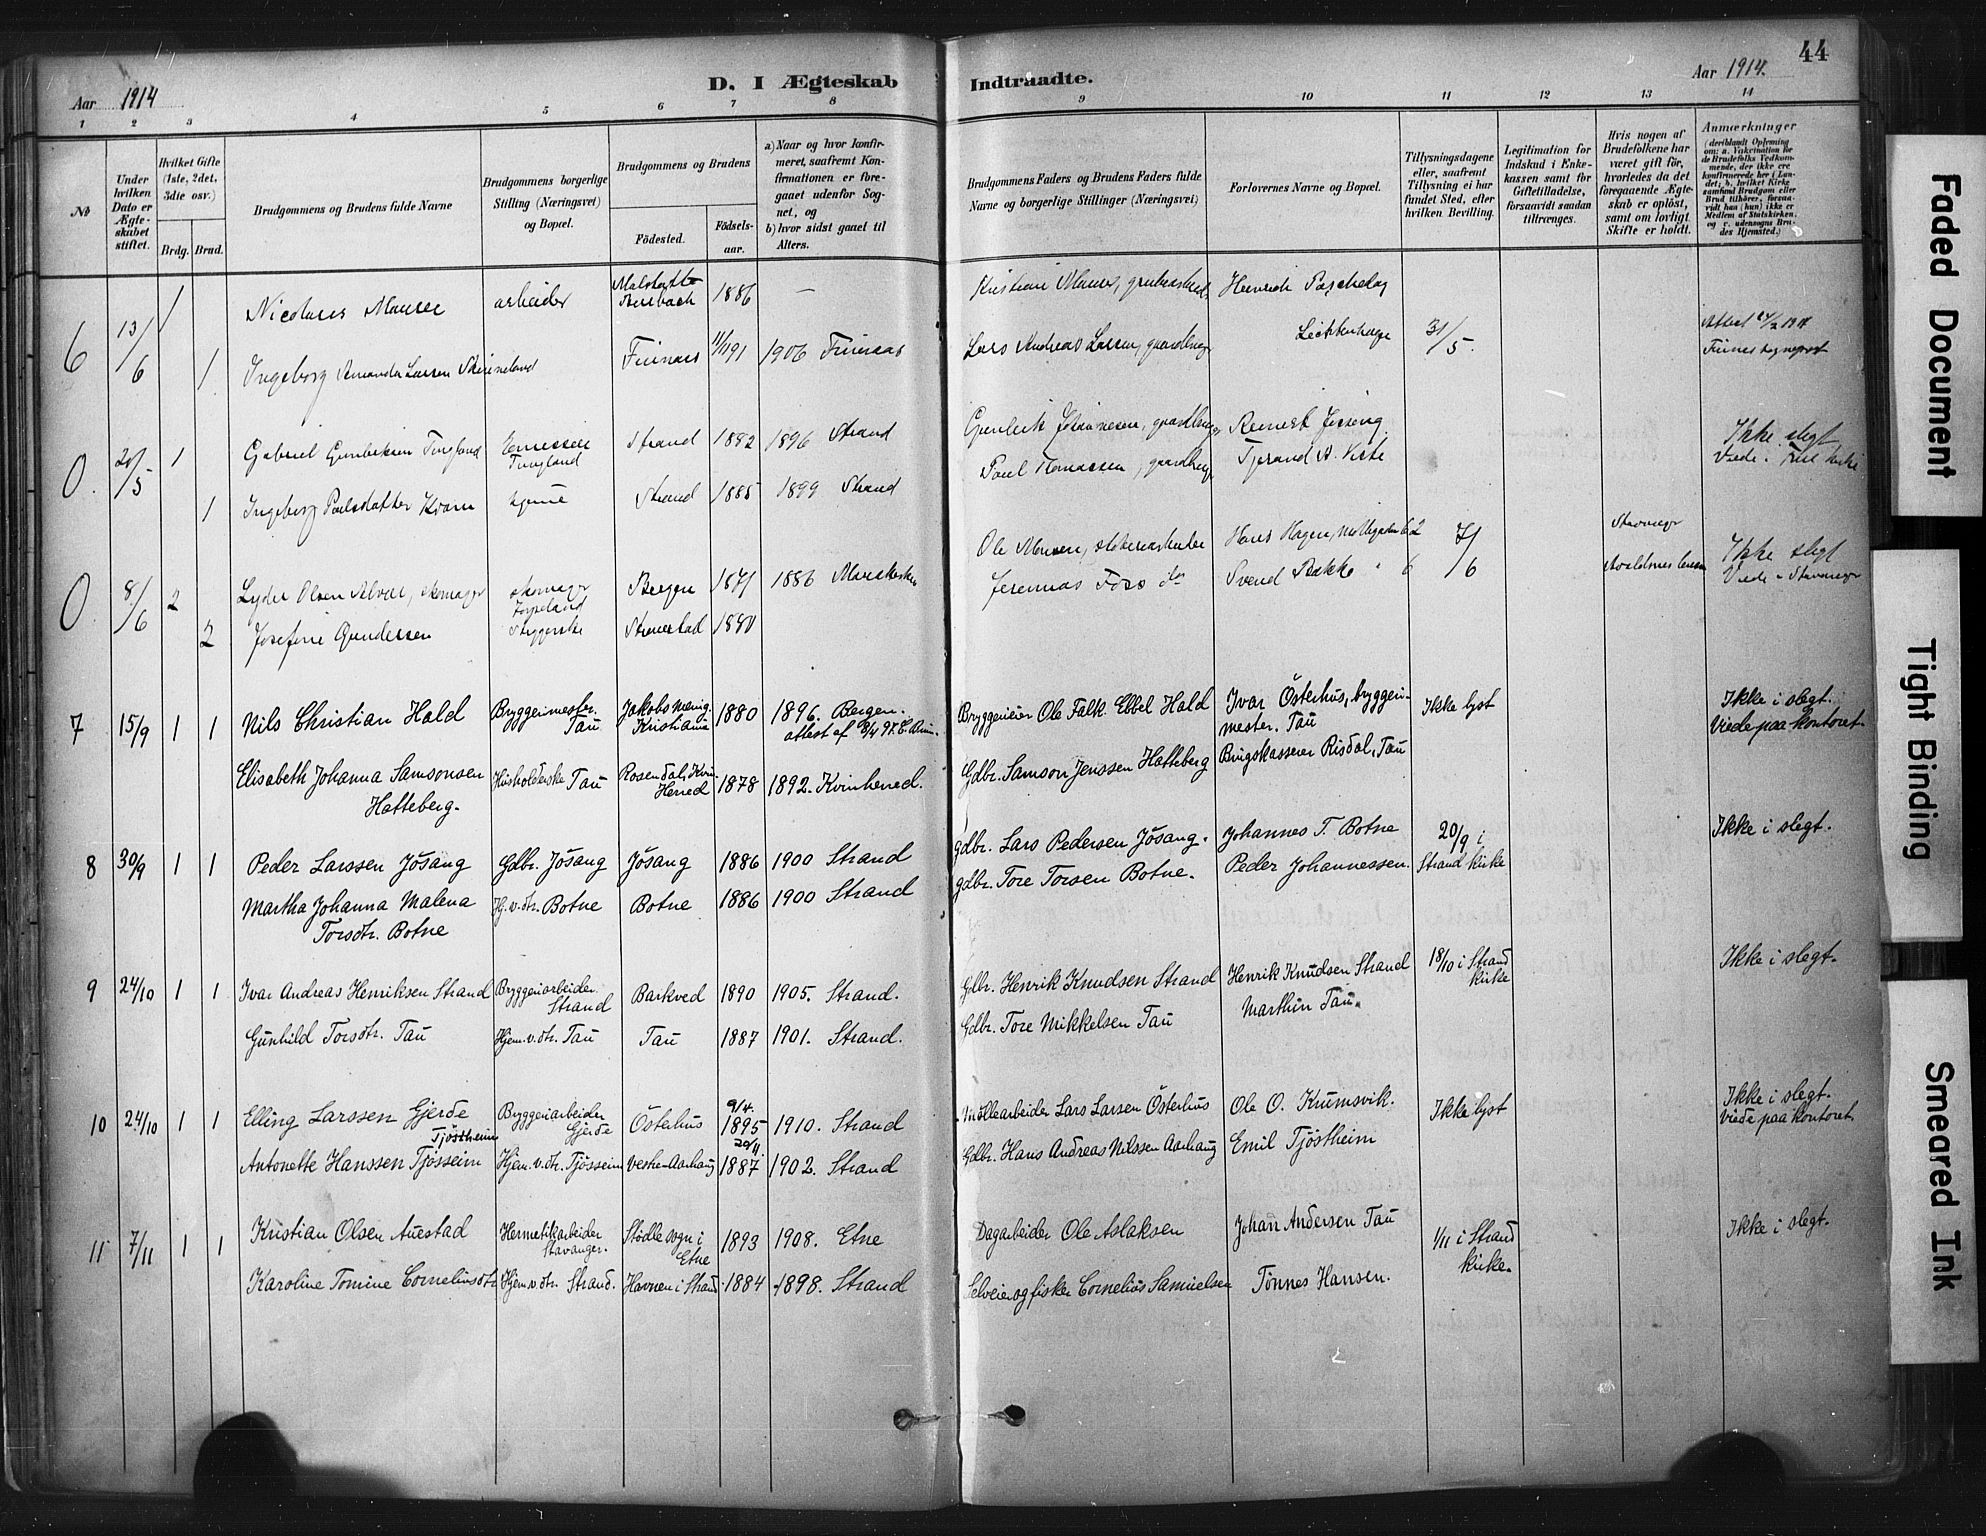 44
Aar 1914
D. I Ægteskab Indtraadte.
Aar 1914.
1 2 3 4 5 6 7 8 9 10 11 12 13 14
No
Under hvilken Dato er Ægteskabet stiftet.
Hvilket Gifte (1ste, 2det, 3die osv.)
Brdg. Brud.
Brudgommens og Brudens fulde Navne
Brudgommens borgerlige Stilling (Næringsvei) og Bopæl.
Brudgommens og Brudens
Fødested. Fødselsaar.
a) Naar og hvor konfirmeret, saafremt Konfirmationen er foregaaet udenfor Sognet, og
b) hvor sidst gaaet til Alters.
Brudgommens Faders og Brudens Faders fulde Navne og borgerlige Stillinger (Næringsvei)
Forlovernes Navne og Bopæl.
Tillysningsdagene eller, saafremt Tillysning ei har fundet Sted, efter hvilken Bevilling.
Legitimation for Indskud i Enkekassen samt for Giftetilladelse, forsaavidt saadan tiltrænges.
Hvis nogen af Brudefolkene har været gift før, hvorledes da det foregaaende Ægteskab er opløst, samt om lovligt Skifte er holdt.
Anmærkninger (deriblandt Oplysning om: a. Vakcination for de Brudefolks Vedkommende, der ikke ere konfirmerede her i Landet; b. hvilket Kirkesamfund Brudgom eller Brud tilhører, forsaavidt han (hun) ikke er Medlem af Statskirken, og c. udensogns Brudes Hjemsted.)
6 13/6 1 Nicolaus Maurer arbeider 1886 — Kristian Maurer, Heinrich
1 Ingeborg Amanda Larsen 11/11 91 1906 Lars Andreas Larsen, gaardbruger 31/5.
0. 20/5 1 Gabriel Tungland Tungland Strand 1882 1896 Strand gaardbruger Ikke slegt
1 Ingeborg Strand 1885 1899 Strand Tjerand A. Viste
0. 8/6 2 Lyder Olsen skomager skomager Bergen 1871 1886 Ole Hans Hagen, 62 7/6 Stavanger Ikke slegt
2 Josefine Gundersen 1880 Svend Bakke Stavanger
7 15/9 1 1 Nils Christian Hald Bryggerimester. Tau Kristiania 1880 1896. Bergen. Ole Falk Ebbel Hald Ivar Østerhus, bryggerimester. Tau Ikke lyst Ikke i slegt. Viede paa kontoret
Elisabeth Johanna Samsonsen Hatteberg. Husholderske Tau Rosendal, 1878 1892. Kvinherred. Gdbr. Samson Jenssen Hatteberg Risdal, Tau
8 30/9 1 1 Peder Larssen Jösang Gdbr. Jösang Jösang 1886 1900 Strand gdbr. Lars Pedersen Jösang. Johannes T. Botne 20/9 i Strand kirke Ikke i slegt.
Martha Johanna Malena Torsdtr. Botne Hj. v. dtr. Botne Botne 1886 1900 Strand gdbr. Tore Torsen Botne. Peder Johannessen.
9 24/10 1 1 Ivar Andreas Henriksen Strand Bryggeriarbeider. Strand Barkved 1890 1905. Strand. Gdbr. Henrik Knudsen Strand Henrik Knudsen Strand 18/10 i Strand kirke Ikke i slegt.
Gunhild Torsdtr. Tau Hjem. v. dtr. Tau Tau 1887 1901. Strand. Gdbr. Tore Mikkelsen Tau Marthin Tau.
10 24/10 1 1 Elling Larssen Gjerde Bryggeriarbeider Gjerde Österhus 9/4. 1895 1910. Strand Möllearbeider Lars Larsen Österhus Ole O. Krumsvik. Ikke lyst Ikke i slegt. Viede paa kontoret
Tjöstheim
Antonette Hanssen Tjösseim Hjem. v. dtr. Tjösseim Vestre Aarhaug 20/11. 1887 1902. Strand Gdbr. Hans Andreas Nilssen Aarhaug Emil Tjöstheim
11 7/11 1 1 Kristian Olsen Auestad Hermetikarbeider Stavanger. Stödle sogn i Etne 1893 1908. Etne Dagarbeider Ole Aslaksen Johan Andersen Tau 1/11 i Strand kirke. Ikke i slegt.
Karoline Tomine Corneliusdtr. Hjem. v. dtr. Strand. Havnen i Strand 1884 1898. Strand Selveier og fisker Cornelius Samuelsen Tönnes Hansen.
Faded Document
Tight Binding
Smeared Ink